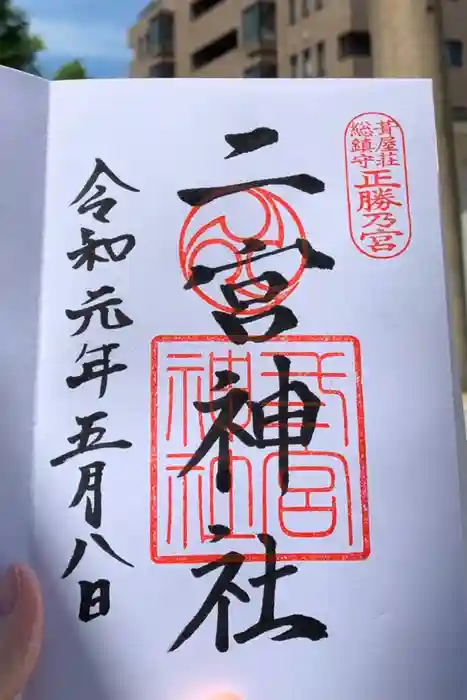 葺屋荘
総鎮守
正勝乃宮
二宮神社
弐宮
神社
令和元年五月八日